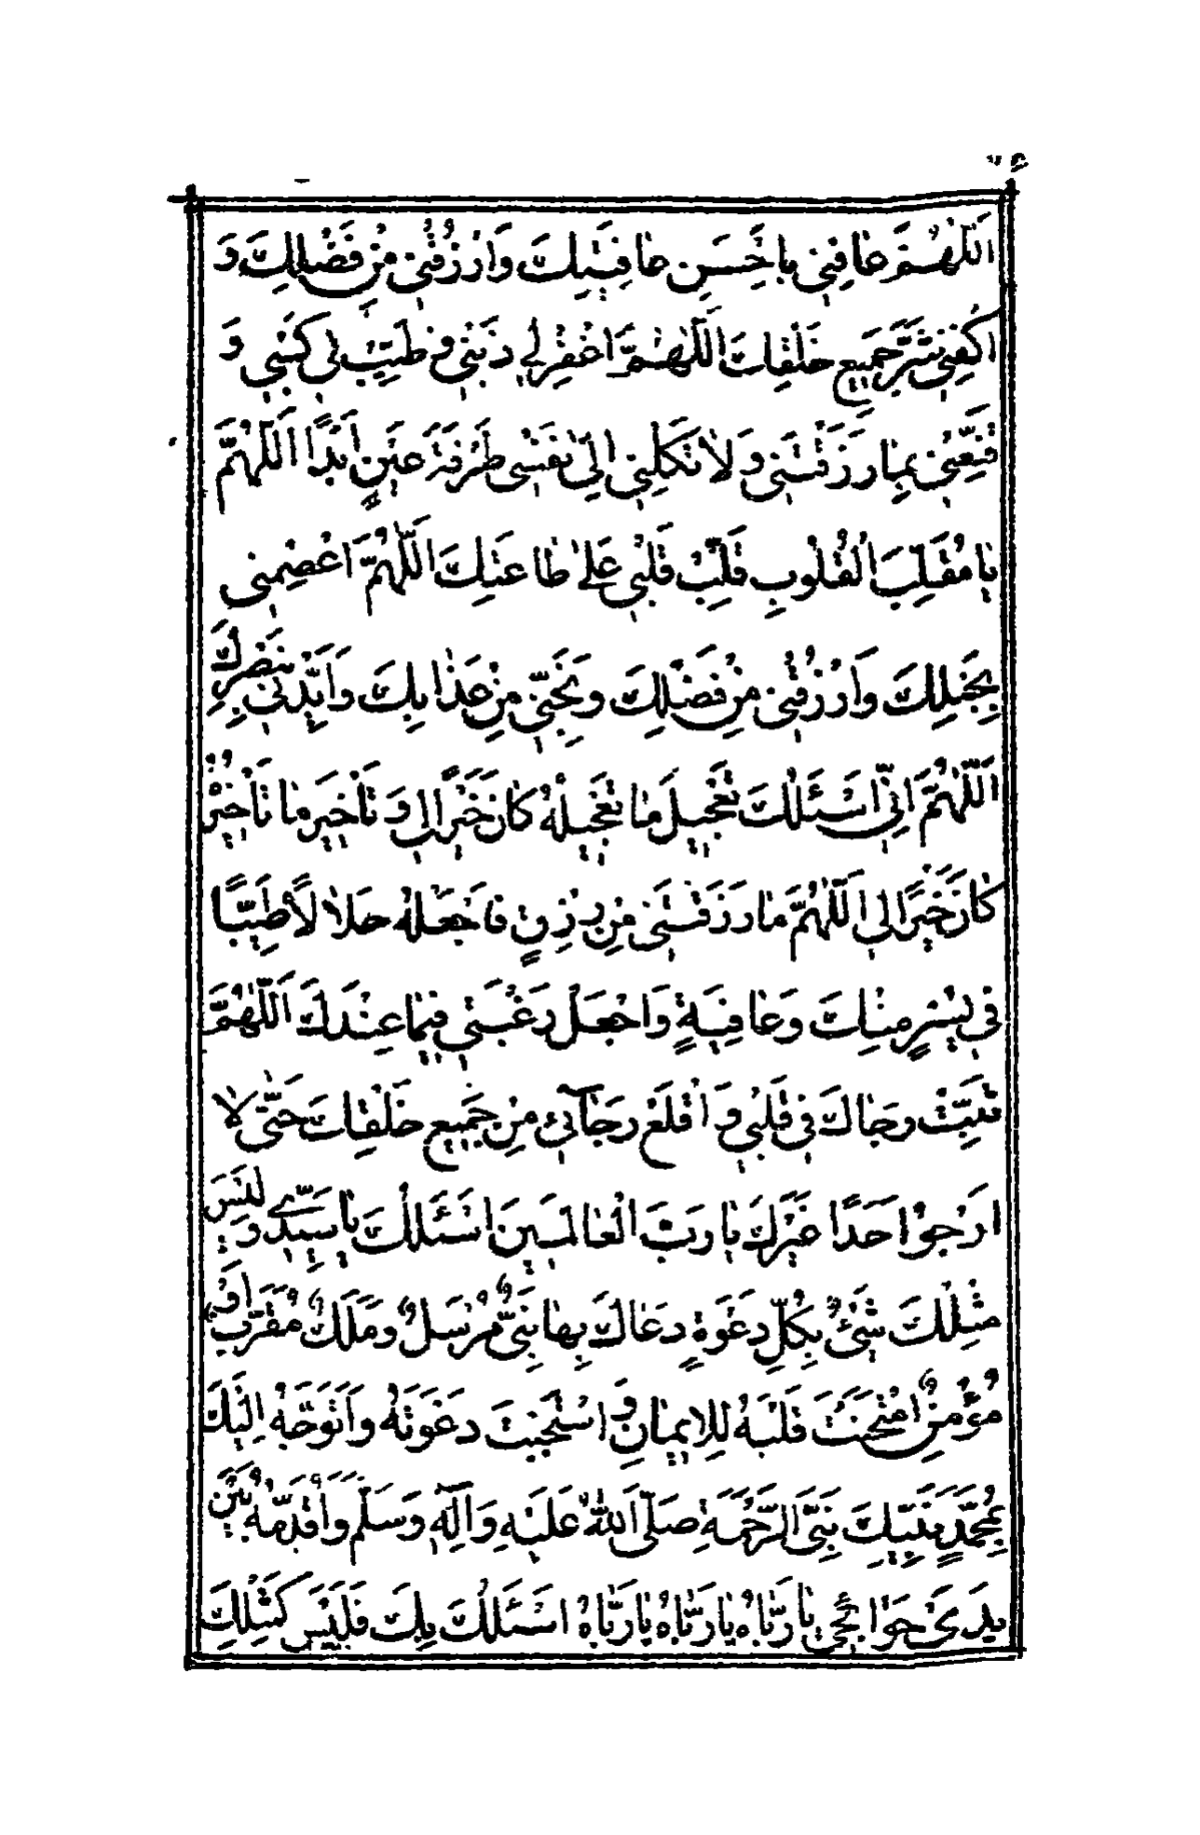 اَللّٰهُمَّ عٰافِنِی بِاَحْسَنِ عٰافِیَتِكَ وَارْزُقْنِی مِنْ فَضْلِكَ وَ
اكْفِنِی شَرَّ جَمِیعِ خَلْقِكَ اَللّٰهُمَّ اغْفِرْ لِی ذَنْبِی وَ طَیِّبْ لِی كَسْبِی وَ
قَنِّعْنِی بِمٰا رَزَقْتَنِی وَ لاٰ تَكِلْنِی اِلٰی نَفْسِی طَرْفَةَ عَیْنٍ اَبَدًا اَللّٰهُمَّ
یٰا مُقَلِّبَ الْقُلُوبِ قَلِّبْ قَلْبِی عَلٰی طٰاعَتِكَ اَللّٰهُمَّ اعْصِمْنِی
بِحَبْلِكَ وَارْزُقْنِی مِنْ فَضْلِكَ وَنَجِّنِی مِنْ عَذٰابِكَ وَاَیِّدْنِی بِنَصْرِكَ
اَللّٰهُمَّ اِنِّی اَسْئَلُكَ تَعْجِیلَ مٰا تَعْجِیلُهُ كٰانَ خَیْرًا لِی وَ تَأْخِیرَ مٰا تَأْخِیرُهُ
كٰانَ خَیْرًا لِی اَللّٰهُمَّ مٰا رَزَقْتَنِی مِنْ رِزْقٍ فَاجْعَلْهُ حَلاٰلًا طَیِّبًا
فِی یُسْرٍ مِنْكَ وَعٰافِیَةٍ وَاجْعَلْ رَغْبَتِی فِیمٰا عِنْدَكَ اَللّٰهُمَّ
ثَبِّتْ رَجٰاكَ فِی قَلْبِی وَ اقْلَعْ رَجٰآئِی مِنْ جَمِیعِ خَلْقِكَ حَتّٰی لاٰ
اَرْجُوَ اَحَدًا غَیْرَكَ یٰا رَبَّ الْعٰالَمِینَ اَسْئَلُكَ یٰا سَیِّدِی وَ لَیْسَ
مِثْلَكَ شَیْءٌ بِكُلِّ دَعْوَةٍ دَعٰاكَ بِهٰا نَبِیٌّ مُرْسَلٌ وَمَلَكٌ مُقَرَّبٌ اَوْ
مُؤْمِنٌ امْتَحَنْتَ قَلْبَهُ لِلْاِیمٰانِ وَ اسْتَجَبْتَ دَعْوَتَهُ وَاَتَوَجَّهُ اِلَیْكَ
بِمُحَمَّدٍ نَبِیِّكَ نَبِیِّ الرَّحْمَةِ صَلَّی اللّٰهُ عَلَیْهِ وَآلِهِ وَسَلَّمَ وَاُقَدِّمُهُ بَیْنَ
یَدَیْ حَوٰائِجِی یٰا رَبّٰاهُ یٰا رَبّٰاهُ یٰا رَبّٰاهُ اَسْئَلُكَ بِكَ فَلَیْسَ كَمِثْلِكَ